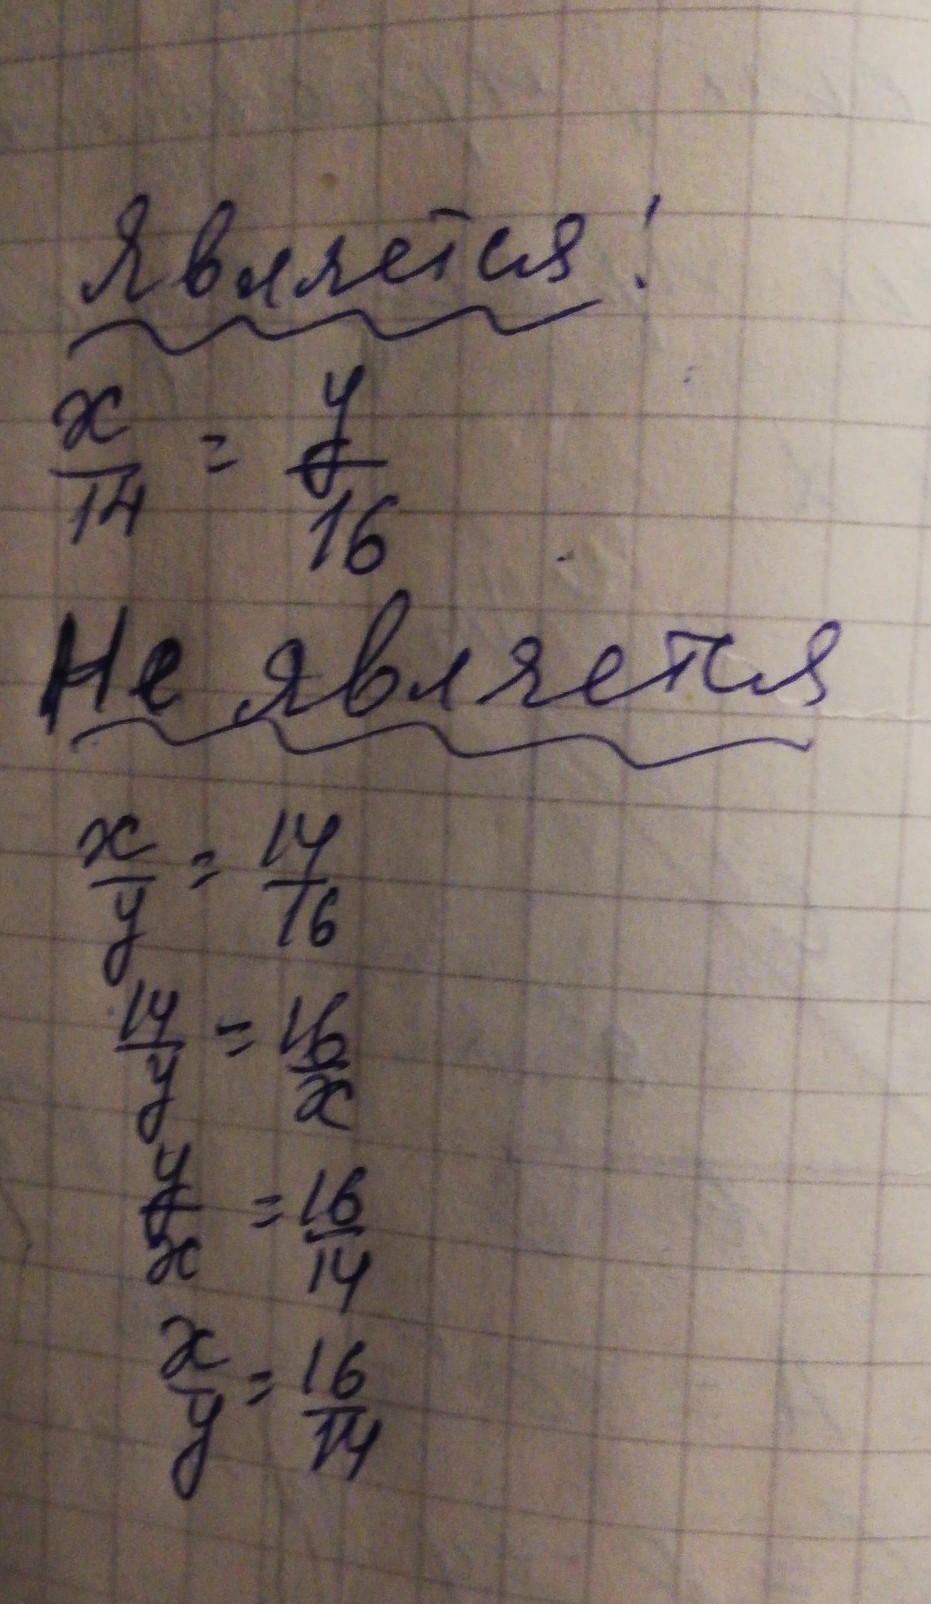 Является!
x/14 = y/16
Не является
x/y = 14/16
14/y = 16/x
y/x = 16/14
x/y = 16/14